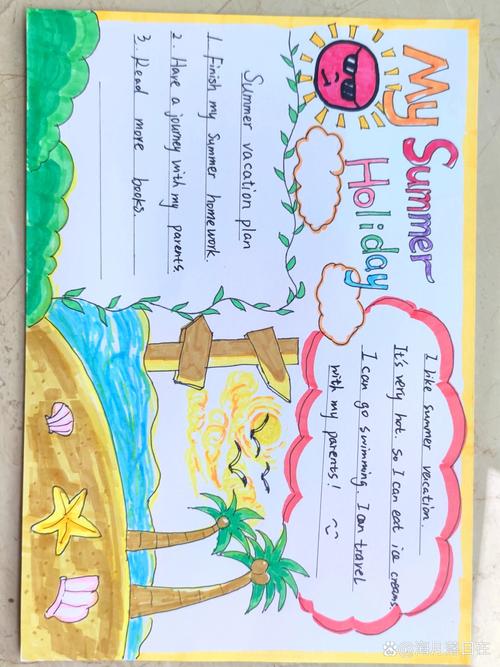 My Summer
Holiday
Summer vacation plan
1. Finish my summer homework.
2. Have a journey with my parents.
3. Read more books.
I like summer vecation.
It's very hot. So I can eat ice creams.
I can go swimming. I can travel
with my parents!
@海月落日在